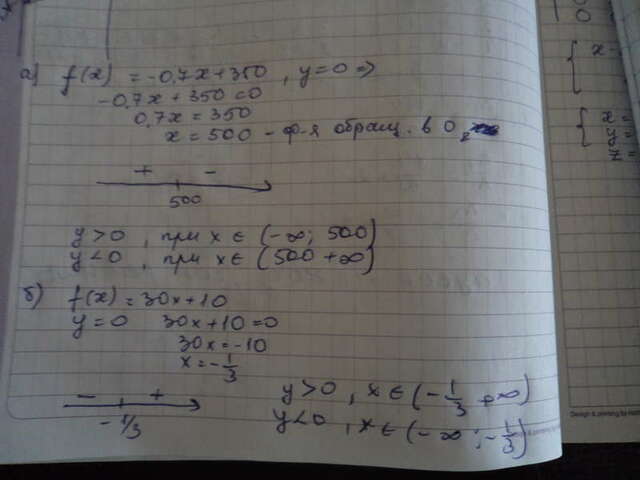 а) f(x) = -0,7x+350, y=0 =>
-0,7x+350=0
0,7x=350
x=500 - ф-я обращ. в 0,
+ -
500
y>0, при x ∈ (-∞; 500)
y<0, при x ∈ (500 +∞)
б) f(x)=30x+10
y=0 30x+10=0
30x=-10
x=-1/3
- +
-1/3
y>0, x ∈ (-1/3 +∞)
y<0, x ∈ (-∞; -1/3)